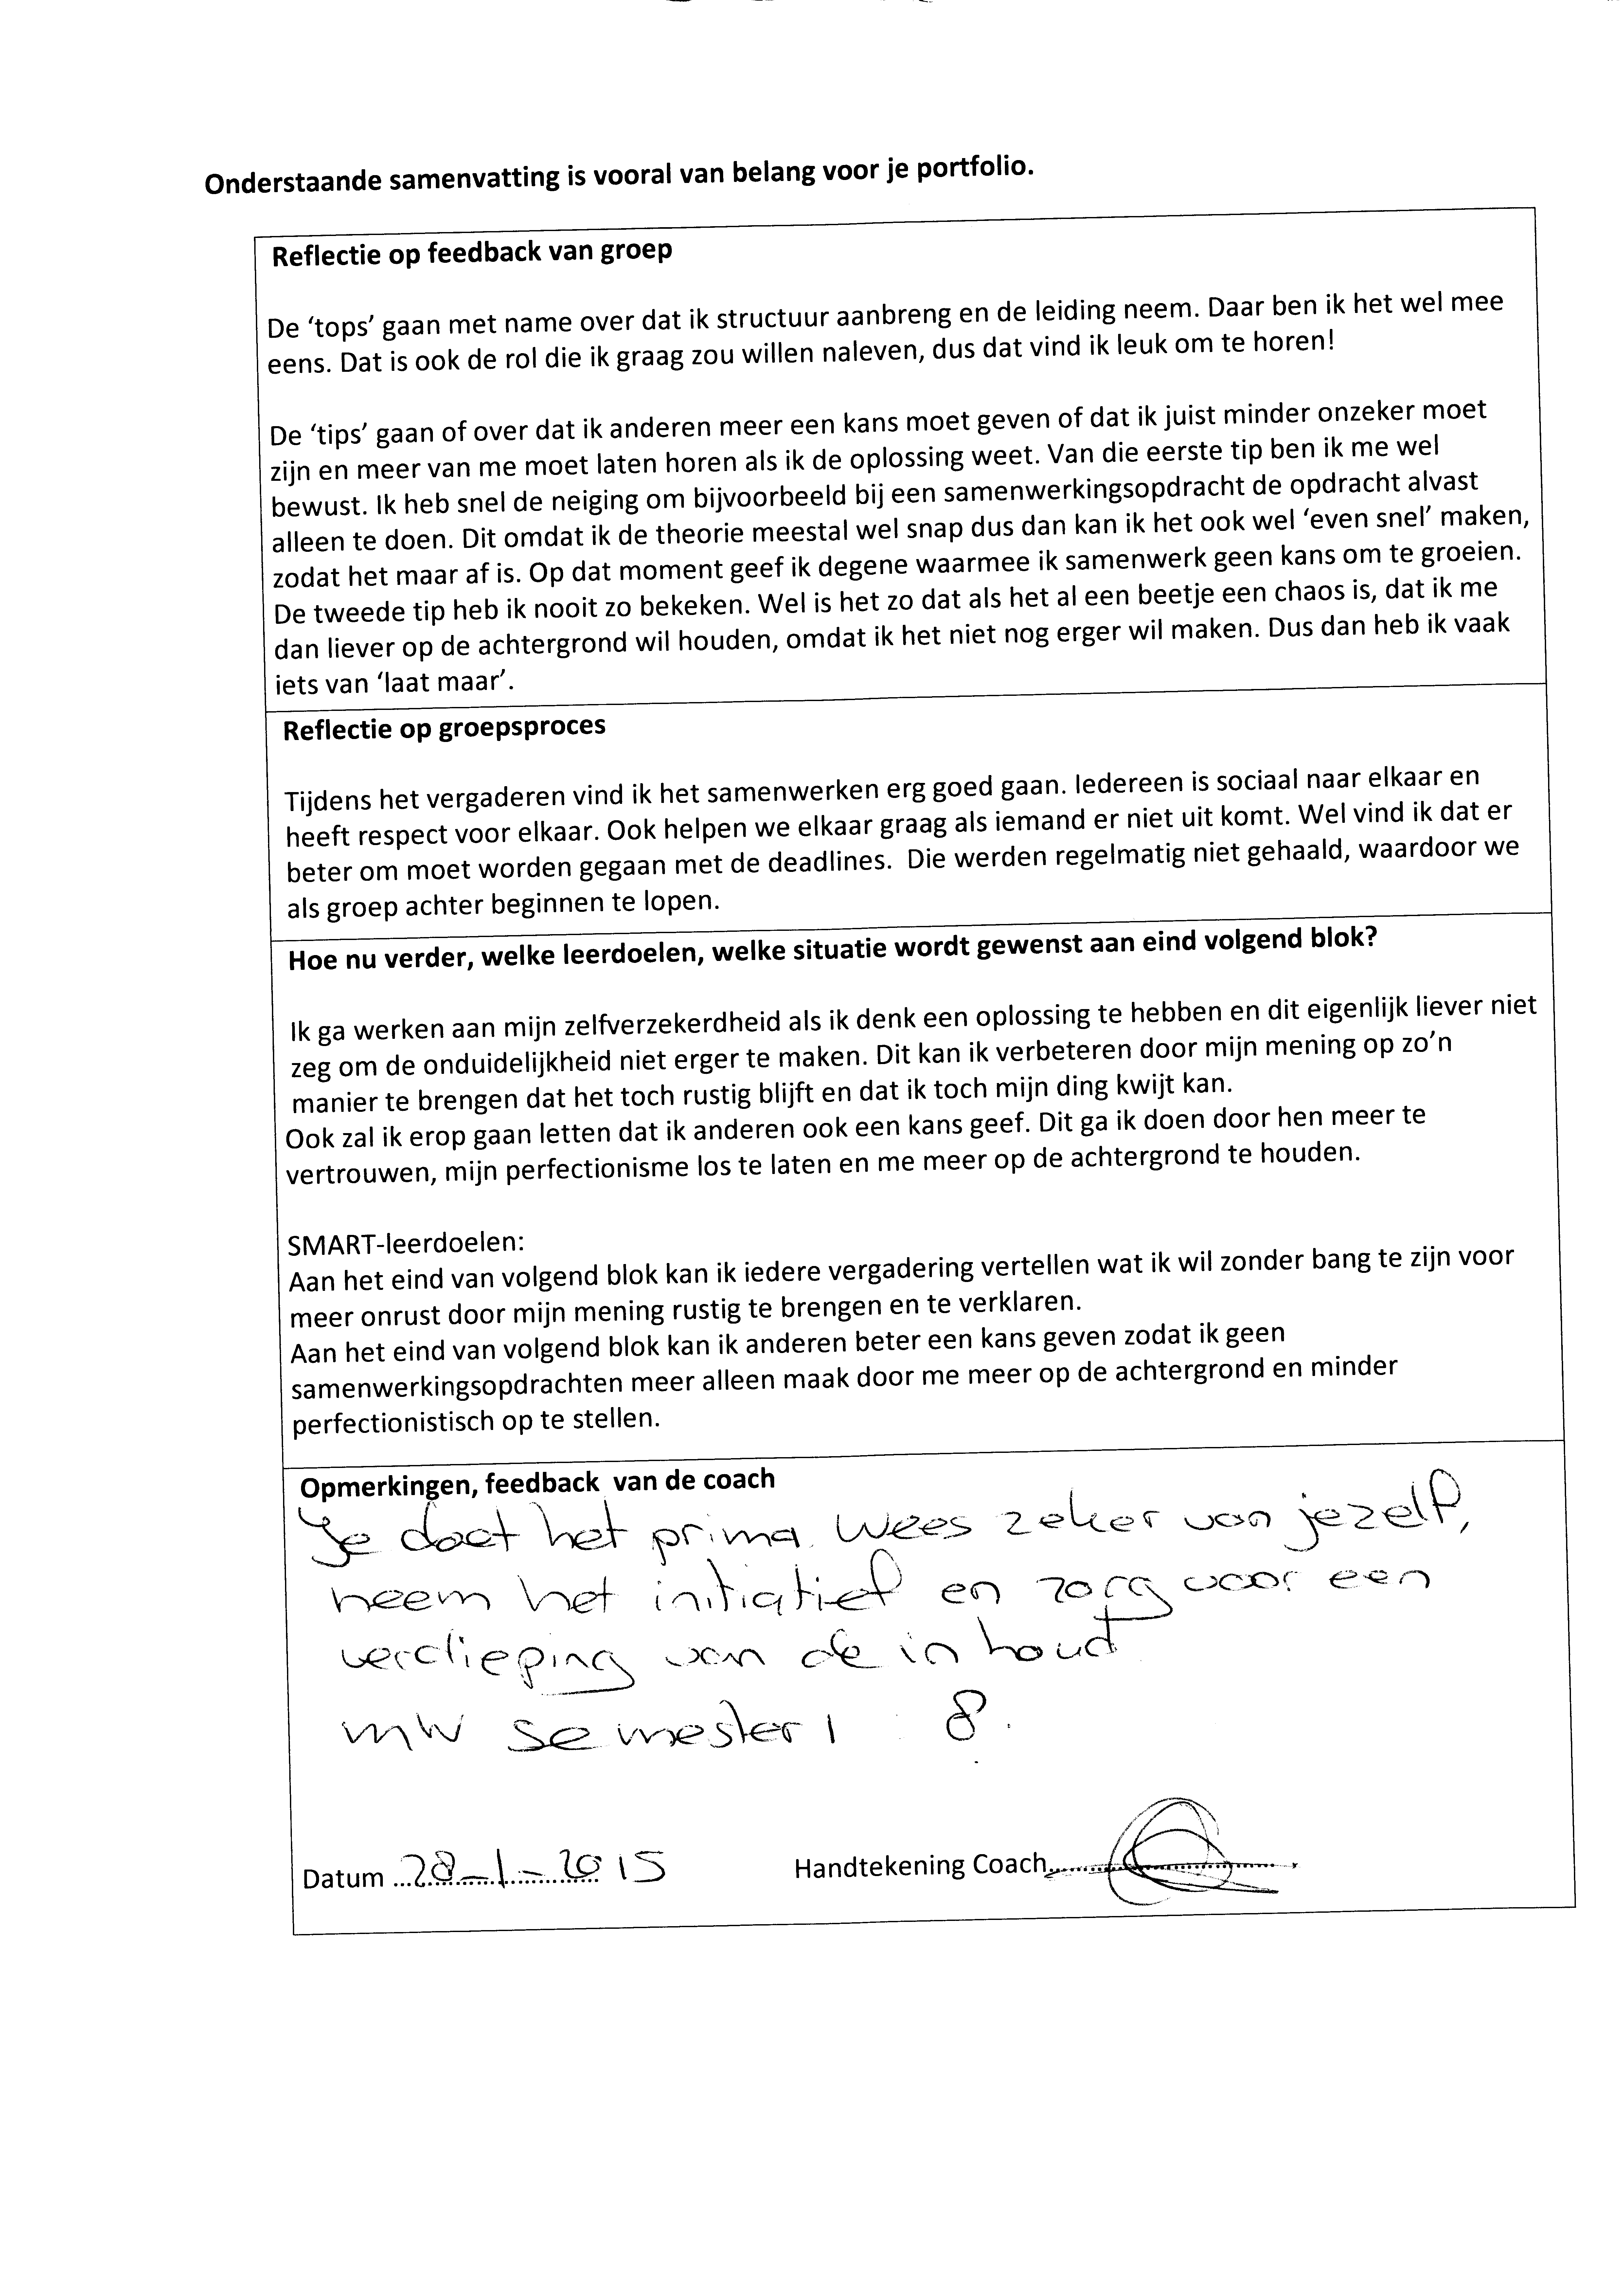 Onderstaande samenvatting is vooral van belang voor je portfolio.
Reflectie op feedback van groep
De ‘tops’ gaan met name over dat ik structuur aanbreng en de leiding neem. Daar ben ik het wel mee
eens. Dat is ook de rol die ik graag zou willen naleven, dus dat vind ik leuk om te horen!
De ‘tips’ gaan of over dat ik anderen meer een kans moet geven of dat ik juist minder onzeker moet
zijn en meer van me moet laten horen als ik de oplossing weet. Van die eerste tip ben ik me wel
bewust. Ik heb snel de neiging om bijvoorbeeld bij een samenwerkingsopdracht de opdracht alvast
alleen te doen. Dit omdat ik de theorie meestal wel snap dus dan kan ik het ook wel ‘even snel’ maken,
zodat het maar af is. Op dat moment geef ik degene waarmee ik samenwerk geen kans om te groeien.
De tweede tip heb ik nooit zo bekeken. Wel is het zo dat als het al een beetje een chaos is, dat ik me
dan liever op de achtergrond wil houden, omdat ik het niet nog erger wil maken. Dus dan heb ik vaak
iets van ‘laat maar’.
Reflectie op groepsproces
Tijdens het vergaderen vind ik het samenwerken erg goed gaan. Iedereen is sociaal naar elkaar en
heeft respect voor elkaar. Ook helpen we elkaar graag als iemand er niet uit komt. Wel vind ik dat er
beter om moet worden gegaan met de deadlines. Die werden regelmatig niet gehaald, waardoor we
als groep achter beginnen te lopen.
Hoe nu verder, welke leerdoelen, welke situatie wordt gewenst aan eind volgend blok?
Ik ga werken aan mijn zelfverzekerdheid als ik denk een oplossing te hebben en dit eigenlijk liever niet
zeg om de onduidelijkheid niet erger te maken. Dit kan ik verbeteren door mijn mening op zo’n
manier te brengen dat het toch rustig blijft en dat ik toch mijn ding kwijt kan.
Ook zal ik erop gaan letten dat ik anderen ook een kans geef. Dit ga ik doen door hen meer te
vertrouwen, mijn perfectionisme los te laten en me meer op de achtergrond te houden.
SMART-leerdoelen:
Aan het eind van volgend blok kan ik iedere vergadering vertellen wat ik wil zonder bang te zijn voor
meer onrust door mijn mening rustig te brengen en te verklaren.
Aan het eind van volgend blok kan ik anderen beter een kans geven zodat ik geen
samenwerkingsopdrachten meer alleen maak door me meer op de achtergrond en minder
perfectionistisch op te stellen.
Opmerkingen, feedback van de coach
Je doet het prima. Wees zeker van jezelf,
neem het initiatief en zorg voor een
verdieping van de inhoud
MW semester 1 8.
Datum 28-1-2015 Handtekening Coach